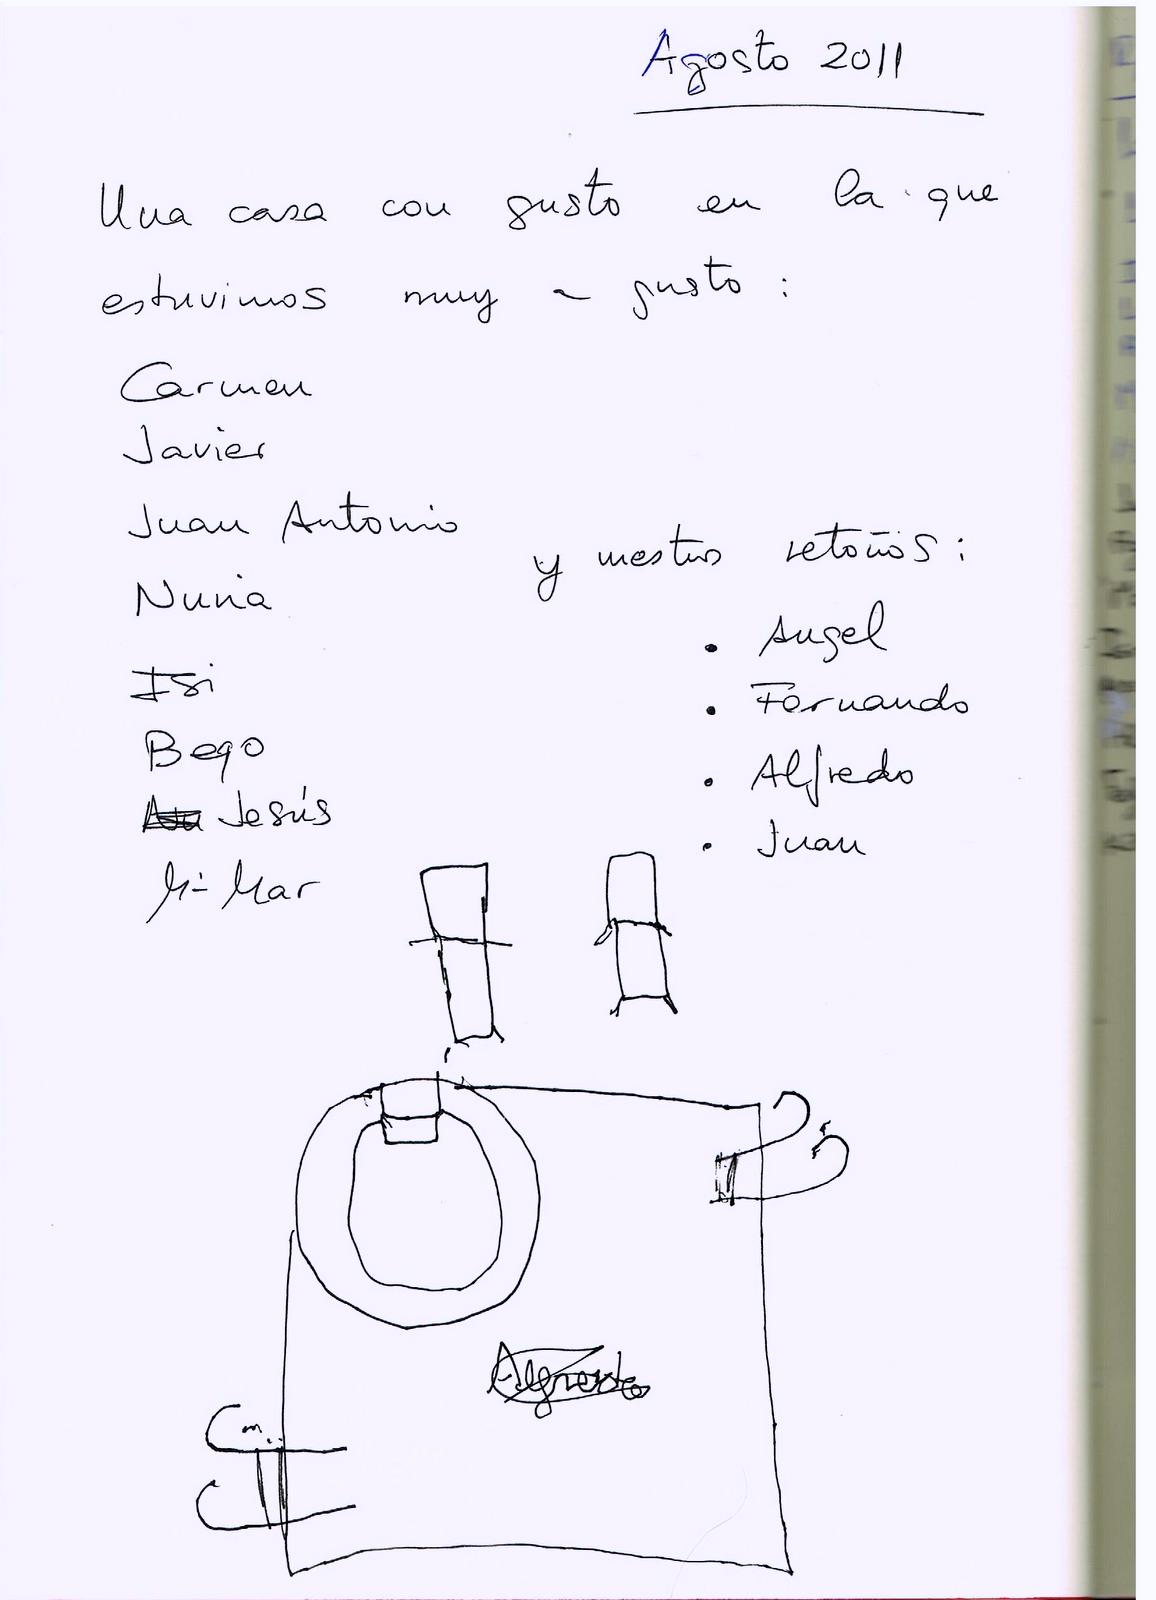 Agosto 2011
Una casa con gusto en la que
estuvimos muy a gusto:
Carmen
Javier
Juan Antonio
Nuria
Isi
Bego
Jesús
Mª Mar
y nuestros retoños:
• Angel
• Fernando
• Alfredo
• Juan
Alfredo